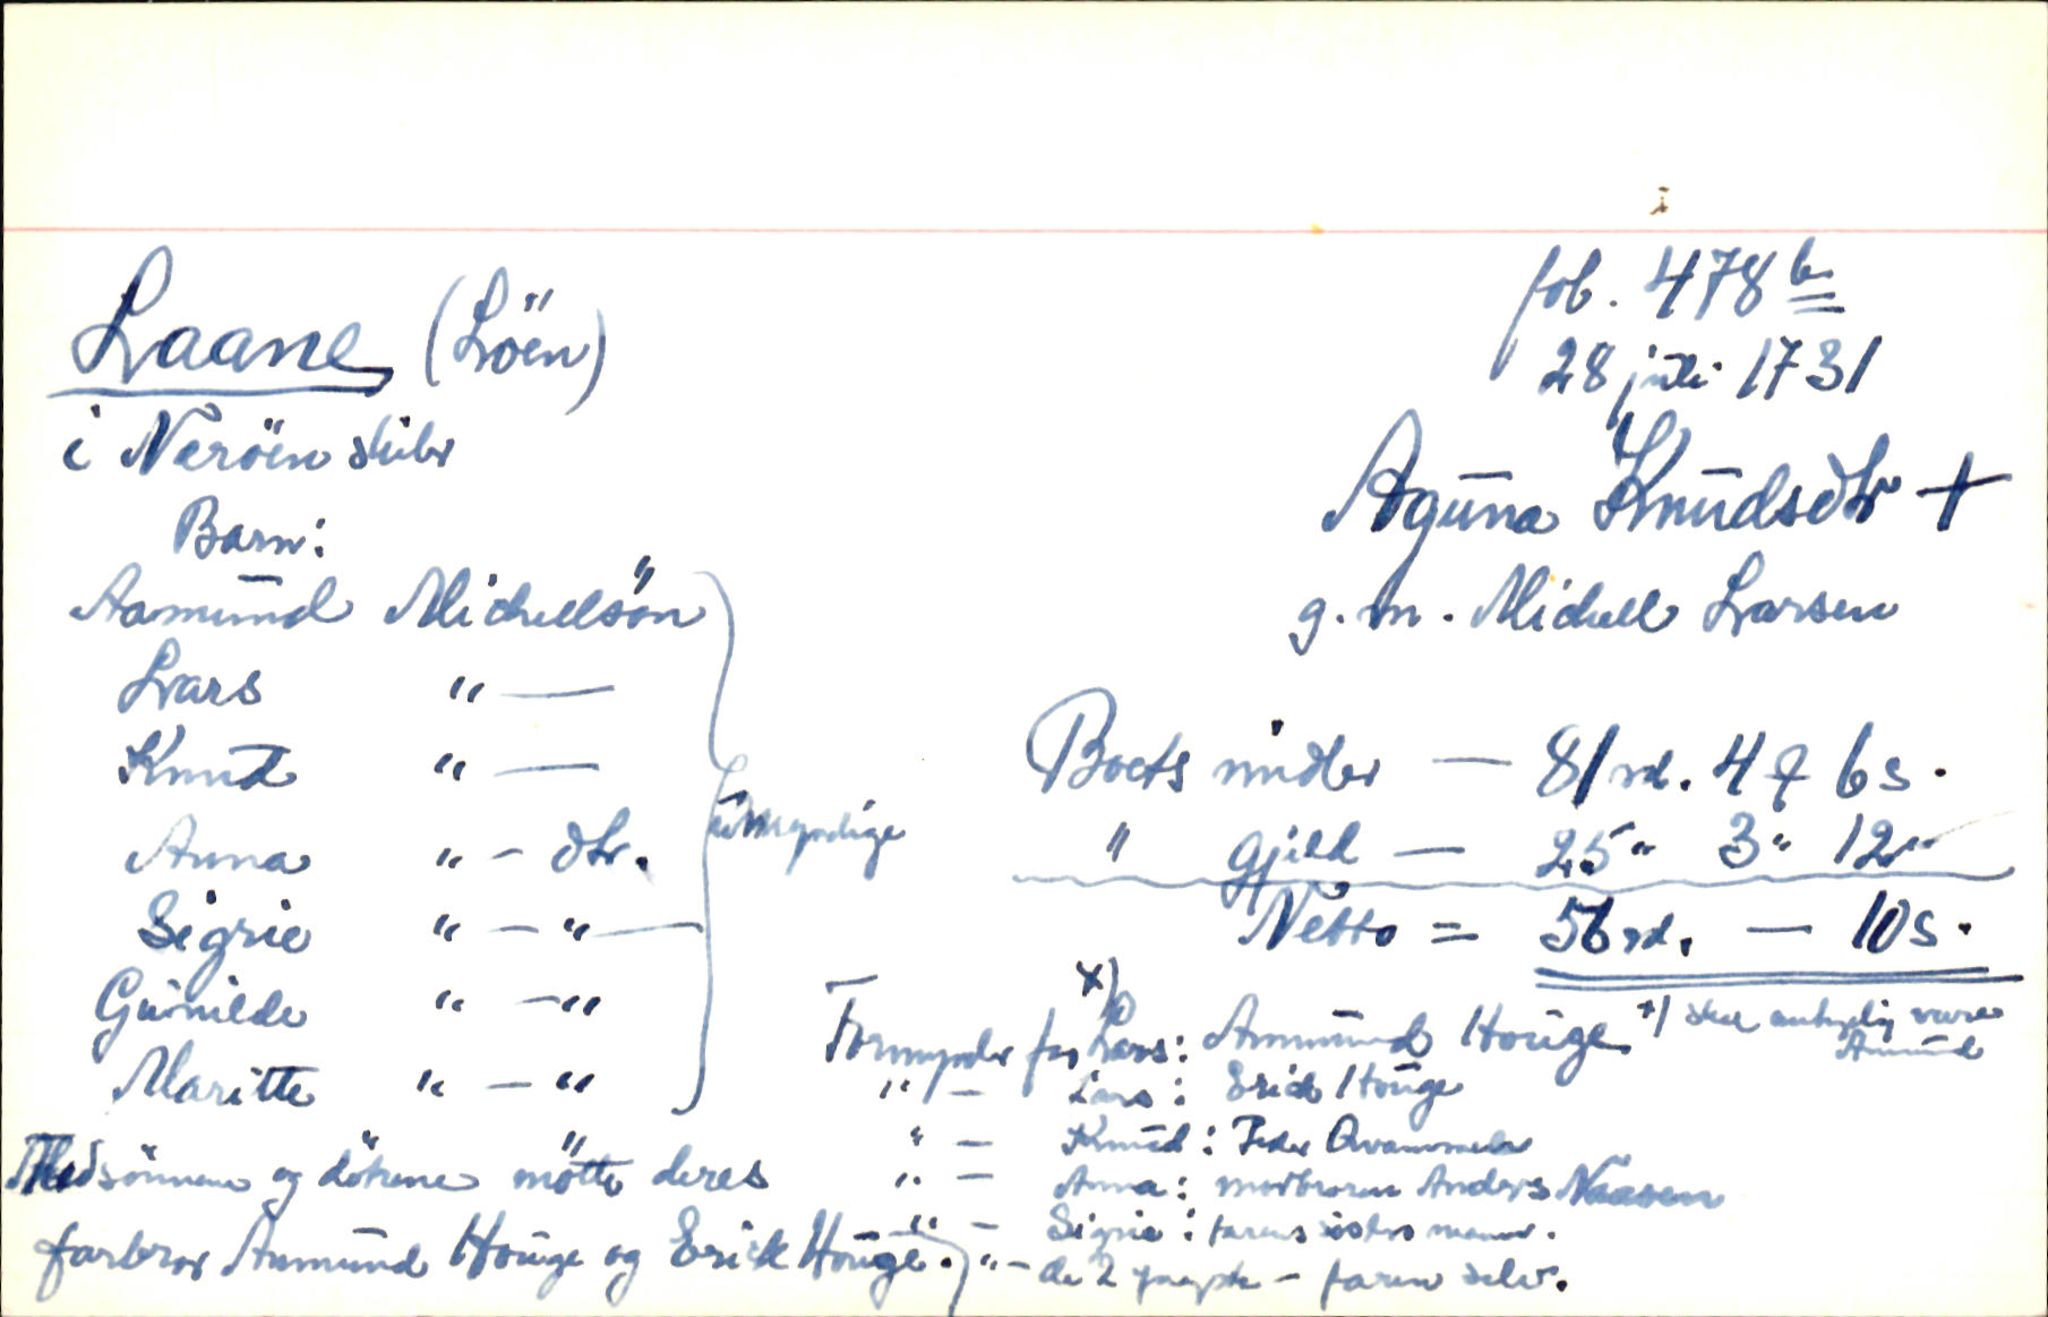 fol. 478 b
28 juli 1731
Laane (Löen)
i Neröen skibr
Aguna Knudsdtr +
g. m. Michell Larsen
Barn:
Aamund Michellsön
Lars " —
Knud " —
Anna " — dtr.
Sigrie " — " —
Gunilde " — "
Maritte " — "
umyndige
Boets midler — 81 rd. 4 ƒ 6 s.
" gjeld — 25 " 3 " 12 "
Netto = 56 rd. — 10 s.
Formynder for x) Lars: Ammund Houge x) skal antagelig være Amund
" — Lars: Erick Houge
" — Knud: Peder
" — Anna: morbroren Anders Naasen
" — Sigrie: farens søsters mann.
" — de 2 yngste — faren selv.
Med sönnene og dötrene mötte deres
farbror Aamund Houge og Erick Houge.